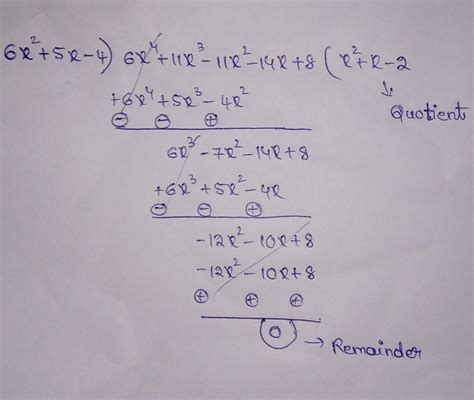 6x²+5x-4) 6x⁴+11x³-11x²-14x+8 ( x²+x-2
Quotient
+6x⁴+5x³-4x²
⊖ ⊖ ⊕
6x³-7x²-14x+8
+6x³+5x²-4x
⊖ ⊖ ⊕
-12x²-10x+8
-12x²-10x+8
⊕ ⊕ ⊕
0 → Remainder